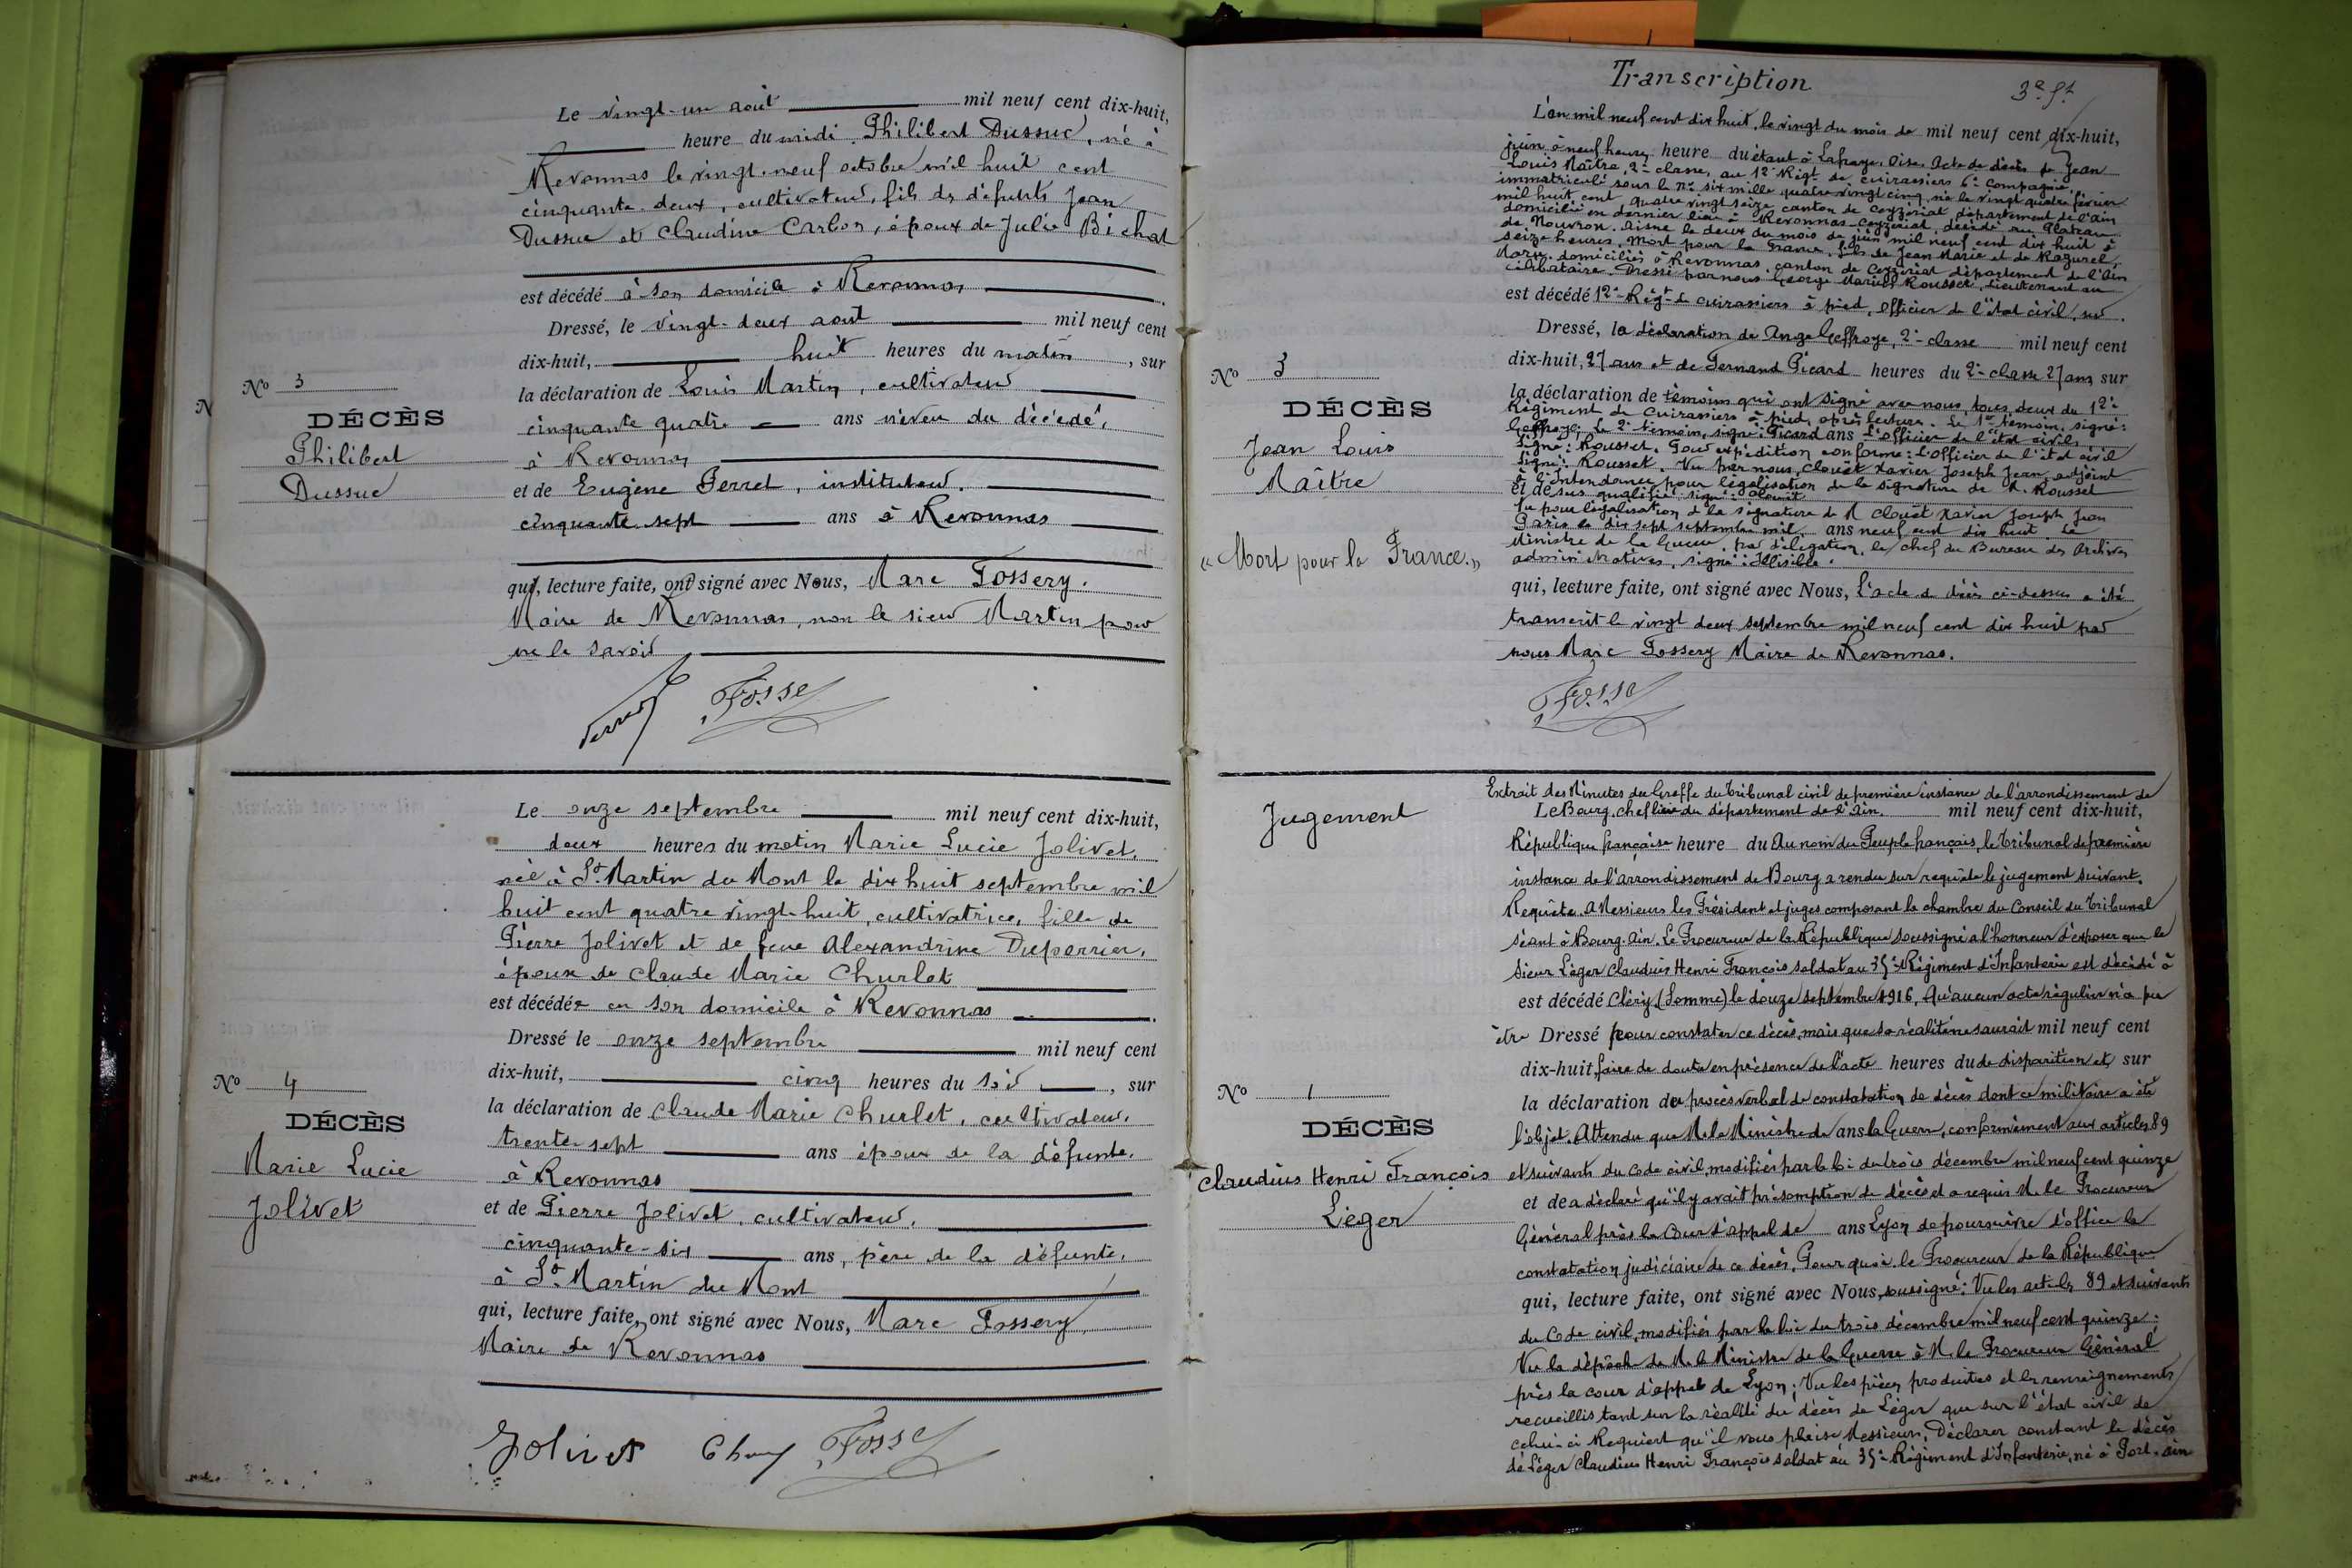 Le vingt-un août mil neuf cent dix-huit,
heure du midi Philibert Dussuc, né à
Revonnas le vingt-neuf octobre mil huit cent
cinquante-deux, cultivateur, fils de défunts Jean
Dussuc et Claudine Carbon, époux de Julie Bichat
est décédé à son domicile à Revonnas
Dressé, le vingt-deux août mil neuf cent
dix-huit, huit heures du matin, sur
la déclaration de Louis Martin, cultivateur
cinquante quatre ans neveu du décédé,
à Revonnas
et de Eugène Perret, instituteur,
cinquante sept ans à Revonnas
qui, lecture faite, ont signé avec Nous, Marc Fossery.
Maire de Revonnas, non le sieur Martin pour
ne le savoir
Perret Fossery
No 3
DÉCÈS
Philibert
Dussuc
Le onze septembre mil neuf cent dix-huit,
deux heures du matin Marie Lucie Jolivet,
née à St Martin du Mont le dix huit septembre mil
huit cent quatre vingt-huit, cultivatrice, fille de
Pierre Jolivet et de feue Alexandrine Duperrier,
épouse de Claude Marie Churlet
est décédée en son domicile à Revonnas
Dressé le onze septembre mil neuf cent
dix-huit, cinq heures du soir, sur
la déclaration de Claude Marie Churlet, cultivateur,
trente-sept ans époux de la défunte,
à Revonnas
et de Pierre Jolivet, cultivateur,
cinquante-six ans, père de la défunte,
à St Martin du Mont
qui, lecture faite, ont signé avec Nous, Marc Fossery
Maire de Revonnas
Jolivet Fossery
No 4
DÉCÈS
Marie Lucie
Jolivet
Transcription
L'an mil neuf cent dix huit, le vingt du mois de mil neuf cent dix-huit,
juin à neuf heures heure du étant à Lafraye, Oise. Acte de décès de Jean
Louis Maître, 2e classe, au 12e Régt de cuirassiers 6e compagnie,
immatriculé sous le no six mille quatre vingt cinq, né le vingt quatre février
mil huit cent quatre vingt seize canton de Ceyzériat, département de l'Ain
domicilié en dernier lieu à Revonnas-Ceyzériat, décédé au Plateau
de Nouvron. Aisne le deux du mois de juin mil neuf cent dix huit à
seize heures. Mort pour la France. fils de Jean Marie et de Raguzel,
Marie, domiciliés à Revonnas, canton de Ceyzériat département de l'Ain
célibataire. Dressé par nous George Marius Rousset, lieutenant au
est décédé 12e Régt de cuirassiers à pied, officier de l'état civil, sur
Dressé, la déclaration de Ange Geffroye, 2e classe mil neuf cent
dix-huit, 27 ans et de Fernand Picard heures du 2e classe 27 ans sur
la déclaration de témoins qui ont signé avec nous, tous deux du 12e
Régiment de Cuirassiers à pied, après lecture. Le 1er témoin, signé:
Geffroye; Le 2e témoin, signé: Picard ans L'officier de l'état civil,
Signé: Rousset. Pour expédition conforme: L'officier de l'état civil
Signé: Rousset. Vu par nous, Clouët Xavier Joseph Jean, adjoint
à l'Intendance pour légalisation de la signature de M. Rousset
et de sus qualifié. signé: Clouët
Vu pour légalisation de la signature de M Clouët Xavier Joseph Jean
Paris le dix sept septembre mil ans neuf cent dix huit. Le
Ministre de la Guerre, par délégation, le chef du Bureau des Archives
administratives, signé: Illisible.
qui, lecture faite, ont signé avec Nous, L'acte de décès ci-dessus a été
transcrit le vingt deux septembre mil neuf cent dix huit par
nous Marc Fossery Maire de Revonnas.
Fossery
No 3
DÉCÈS
Jean Louis
Maître
« Mort pour la France. »
Jugement
Extrait des Minutes du Greffe du Tribunal civil de première instance de l'arrondissement de
Le Bourg, chef lieu du département de l'Ain. mil neuf cent dix-huit,
République française heure du Au nom du Peuple français, le Tribunal de première
instance de l'arrondissement de Bourg a rendu sur requête le jugement suivant.
Requête. A Messieurs les Président et juges composant la chambre du Conseil du Tribunal
séant à Bourg. Ain. Le Procureur de la République soussigné a l'honneur d'exposer que le
sieur Léger Claudius Henri François soldat au 35e Régiment d'Infanterie est décédé à
est décédé Cléry (Somme) le douze septembre 1916, Qu'aucun acte régulier n'a pu
être Dressé pour constater ce décès, mais que sa réalité ne saurait mil neuf cent
dix-huit, faire de doute en présence de l'acte heures du de disparition et sur
la déclaration du procès verbal de constatation de décès dont ce militaire a été
l'objet. Attendu que M. le Ministre de ans la Guerre, conformément aux articles 89
et suivants du Code civil, modifiés par la loi du trois décembre mil neuf cent quinze
et de a déclaré qu'il y avait présomption de décès et a requis M. le Procureur
Général près la Cour d'appel de ans Lyon de poursuivre d'office la
constatation judiciaire de ce décès. Pourquoi le Procureur de la République
qui, lecture faite, ont signé avec Nous, soussigné: Vu les articles 89 et suivants
du Code civil, modifiés par la loi du trois décembre mil neuf cent quinze:
Vu la dépêche de M. le Ministre de la Guerre à M. le Procureur Général
près la cour d'appel de Lyon; Vu les pièces produites et les renseignements
recueillis tant sur la réalité du décès de Léger que sur l'état civil de
celui-ci Requiert qu'il vous plaise Messieurs, Déclarer constant le décès
de Léger Claudius Henri François soldat au 35e Régiment d'Infanterie, né à Port. Ain
No 1
DÉCÈS
Claudius Henri François
Léger